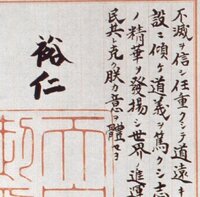 不滅ヲ信シ任重クシテ道遠キ
設ニ傾ケ道義ヲ篤クシ志
ノ精華ヲ發揚シ世界ノ進運
民其レ克ク朕カ意ヲ體セヨ
裕仁